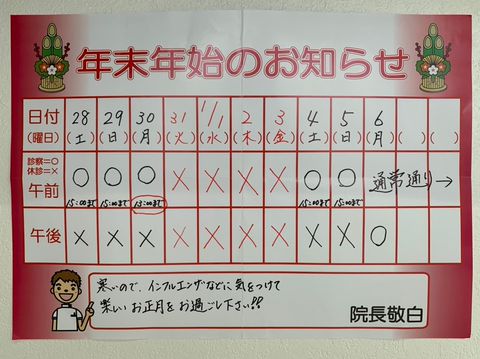 年末年始のお知らせ
日付 28 29 30 31 1/1 2 3 4 5 6
(曜日) (土) (日) (月) (火) (水) (木) (金) (土) (日) (月) ( ) ( )
診察=○
休診=×
午前 ○ ○ ○ × × × × ○ ○ 通常通り→
15:00まで 15:00まで 13:00まで 15:00まで 15:00まで
午後 × × × × × × × × × ○
寒いので、インフルエンザなどに気をつけて
楽しいお正月をお過ごし下さい!!
院長敬白